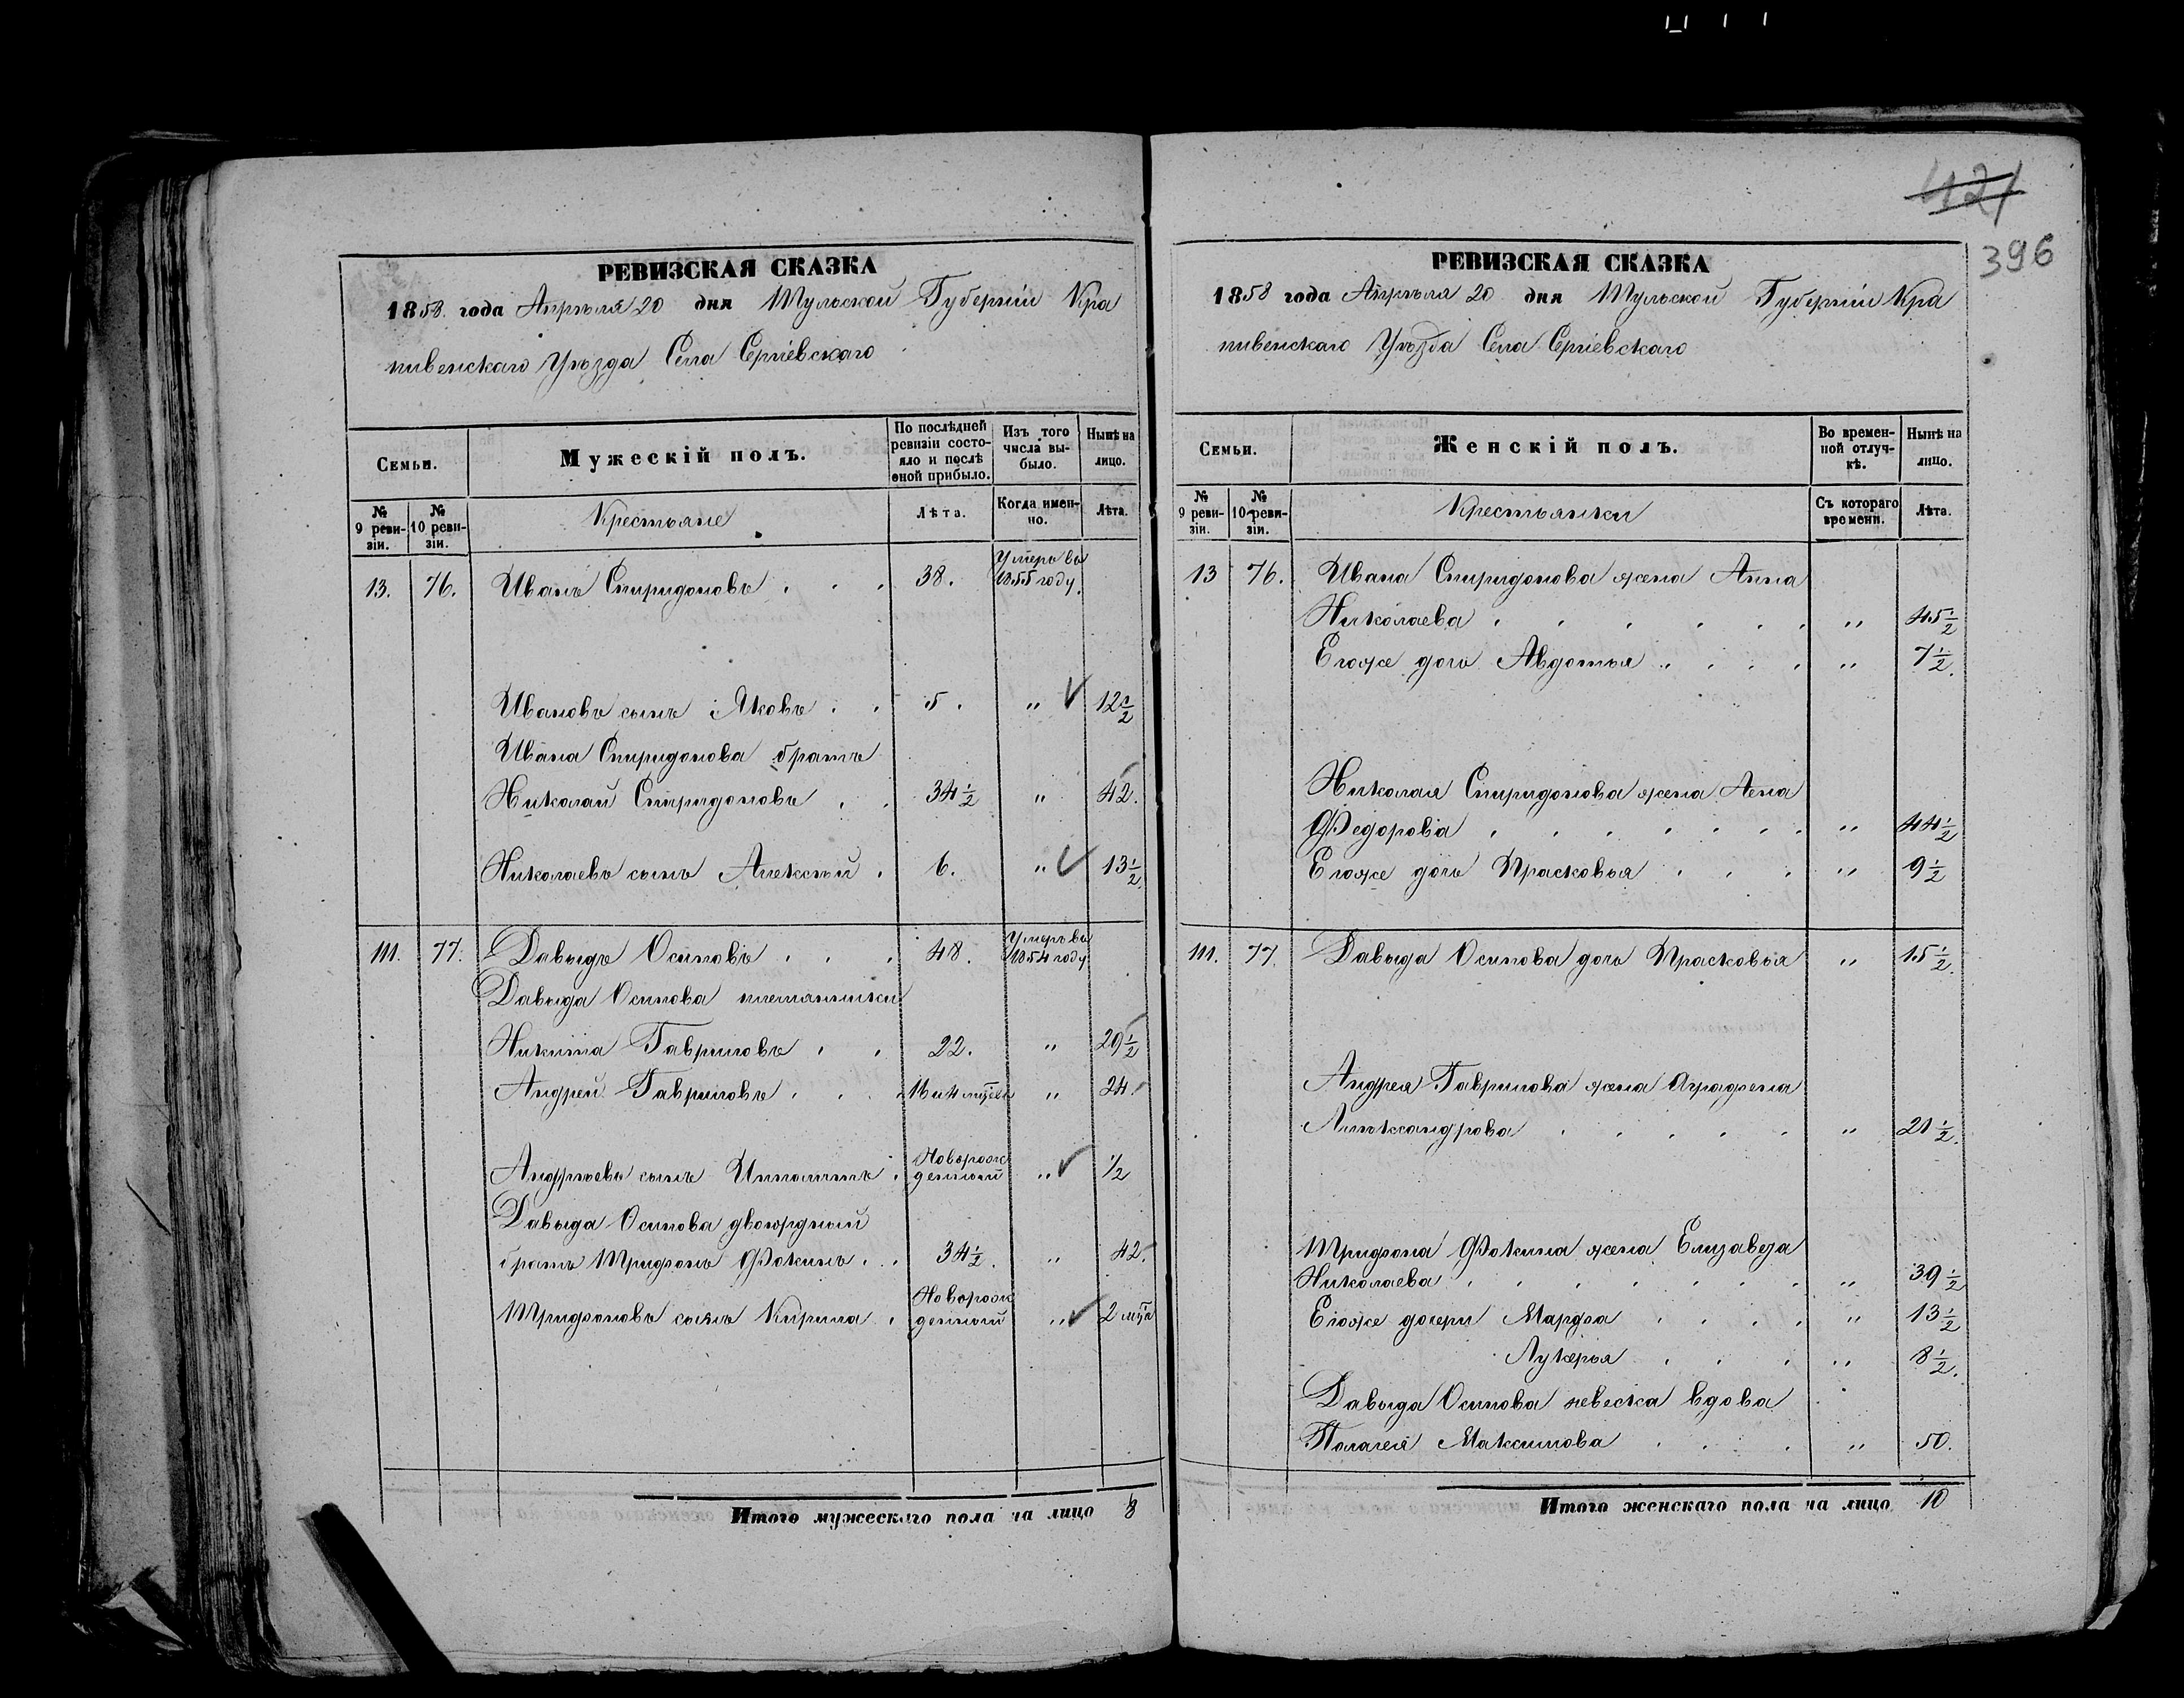 421
396
РЕВИЗСКАЯ СКАЗКА
1858 года Апрѣля 20 дня Тульской Губерніи Кра
пивенскаго Уѣзда Села Сергіевскаго
Семьи.
Мужескій полъ.
По послѣдней ревизіи состояло и послѣ оной прибыло.
Изъ того числа выбыло.
Нынѣ на лицо.
№ 9 ревизіи.
№ 10 ревизіи.
Крестьяне
Лѣта.
Когда именно.
Лѣта.
13. 76. Иванъ Спиридоновъ . . . 38. Умеръ въ 1855 году.
Ивановъ сынъ Яковъ . . 5. " 12 1/2
Ивана Спиридонова братъ
Николай Спиридоновъ . . 34 1/2 " 42.
Николаевъ сынъ Алексѣй . 6. " 13 1/2
111. 77. Давыдъ Осиповъ . . . 48. Умеръ въ 1854 году
Давыда Осипова племянники
Никита Гавриловъ . . 22. " 29 1/2
Андрей Гавриловъ . . . 16 и 4 мѣсец " 24.
Андрѣевъ сынъ Ипполитъ . Новорожденный " 1/2
Давыда Осипова двоюрдный
братъ Трифонъ Фокинъ . . 34 1/2. " 42.
Трифоновъ сынъ Кирила . Новорожденный " 2 мца
Итого мужескаго пола на лицо 8
РЕВИЗСКАЯ СКАЗКА
1858 года Апрѣля 20 дня Тульской Губерніи Кра
пивенскаго Уѣзда Села Сергіевскаго
Семьи.
Женскій полъ.
Во временной отлучкѣ.
Нынѣ на лицо.
№ 9 ревизіи.
№ 10 ревизіи.
Крестьянки
Съ котораго времени.
Лѣта.
13 76. Ивана Спиридонова жена Анна
Николаева . . . . . . " 45 1/2
Егоже дочь Авдотья . . . . " 7 1/2.
Николая Спиридонова жена Аена
Федорова . . . . . . . " 44 1/2
Егоже дочь Прасковья . . . " 9 1/2
111. 77. Давыда Осипова дочь Прасковья " 15 1/2.
Андрея Гаврилова жена Аграфена
Алѣксандрова . . . . . " 21 1/2.
Трифона Фокина жена Елизавеза
Николаева . . . . . . . " 39 1/2
Егоже дочери Марфа . . . . " 13 1/2
Лукерья . . . " 8 1/2.
Давыда Осипова невеска вдова
Палагея Максимова . . . . " 50.
Итого женскаго пола на лицо 10